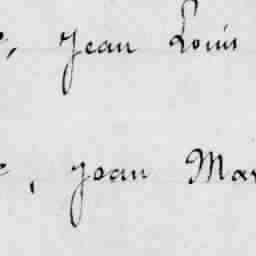 , Jean Louis
, Jean Mar